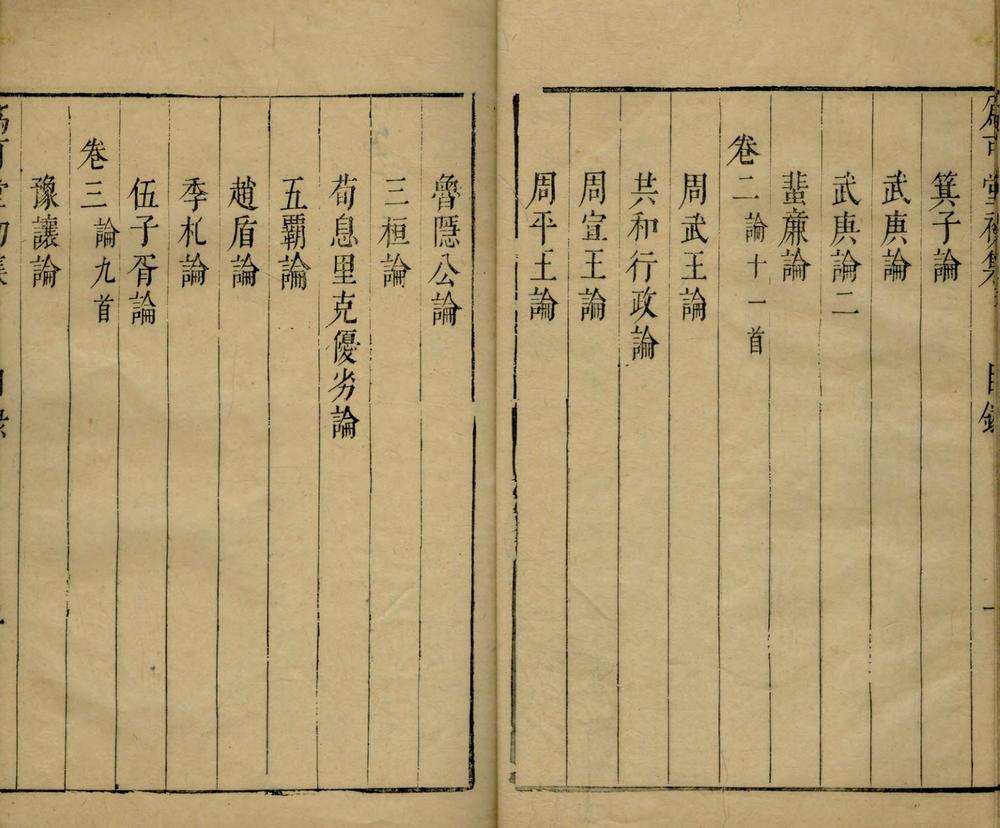 爲可堂初集 目錄 一
箕子論
武庚論
武庚論二
蜚廉論
卷二 論十一首
周武王論
共和行政論
周宣王論
周平王論
魯隱公論
三桓論
荀息里克優劣論
五覇論
趙盾論
季札論
伍子胥論
卷三 論九首
豫讓論
爲可堂初集 目錄